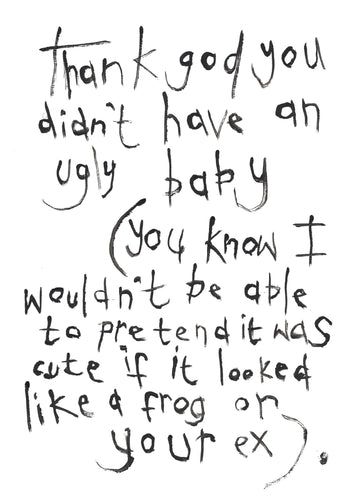 Thank god you
didn't have an
ugly baby
(you know I
wouldn't be able
to pretend it was
cute if it looked
like a frog or
your ex).